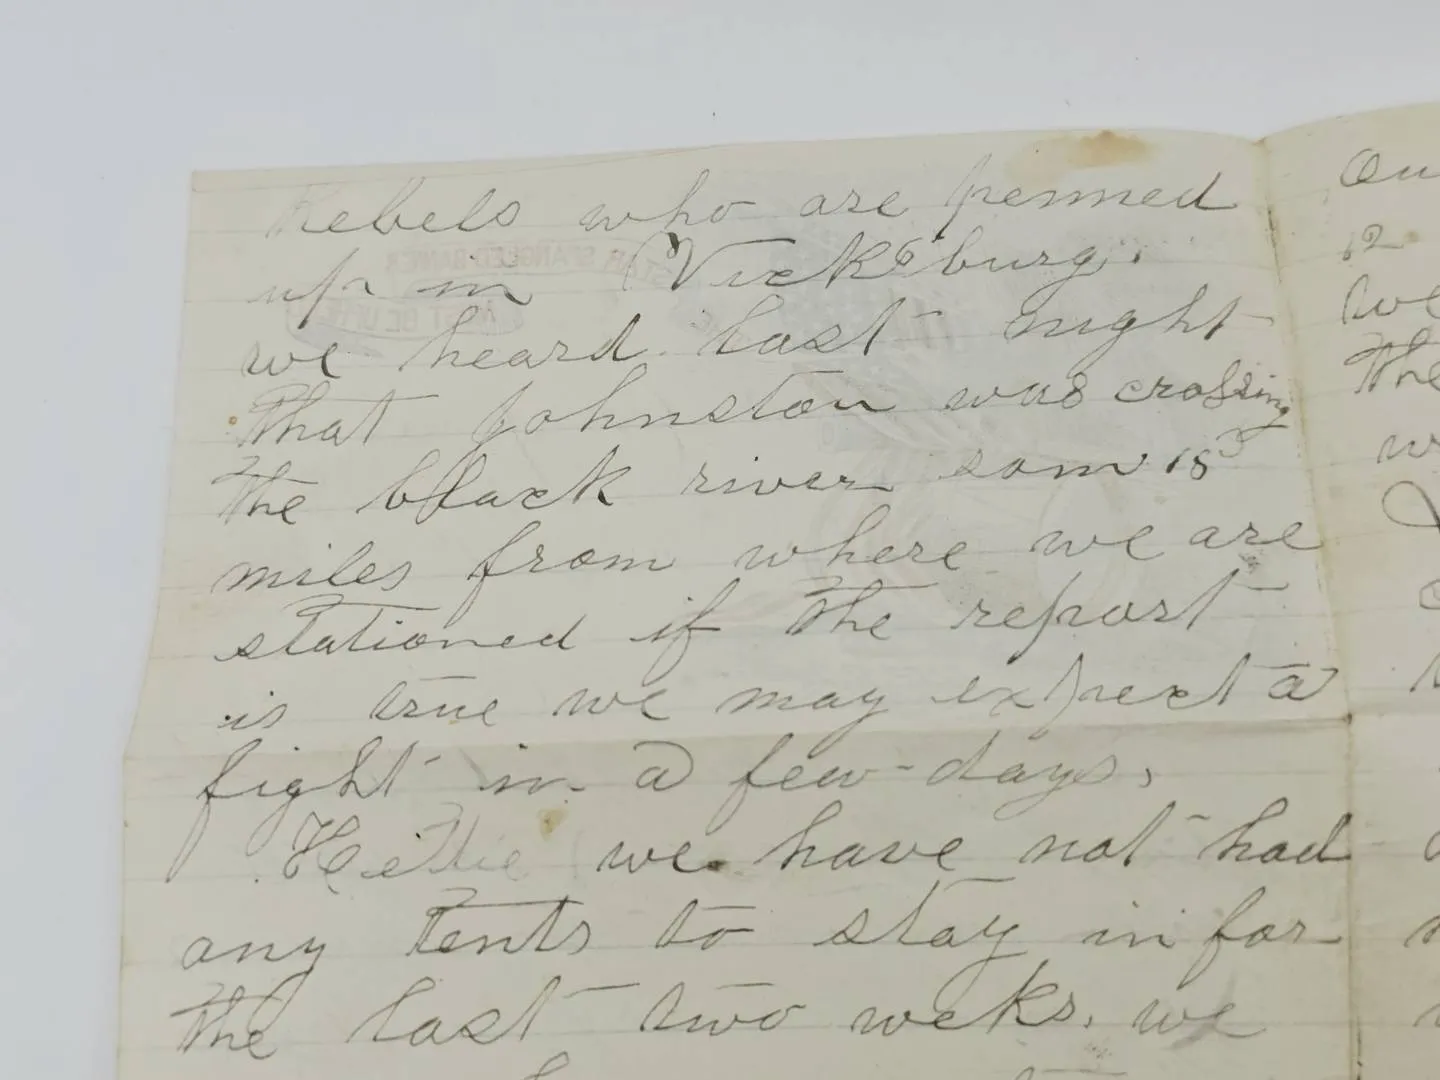 Rebels who are penned
up in Vicksburg.
we heard last night
that Johnston was crossing
the black river som 15
miles from where we are
stationed if the report
is true we may expect a
fight in a few days,
Hettie we have not had
any tents to stay in for
the last two weks. we
Ou
12
we
the
w
STAR SPANGLED BANNER